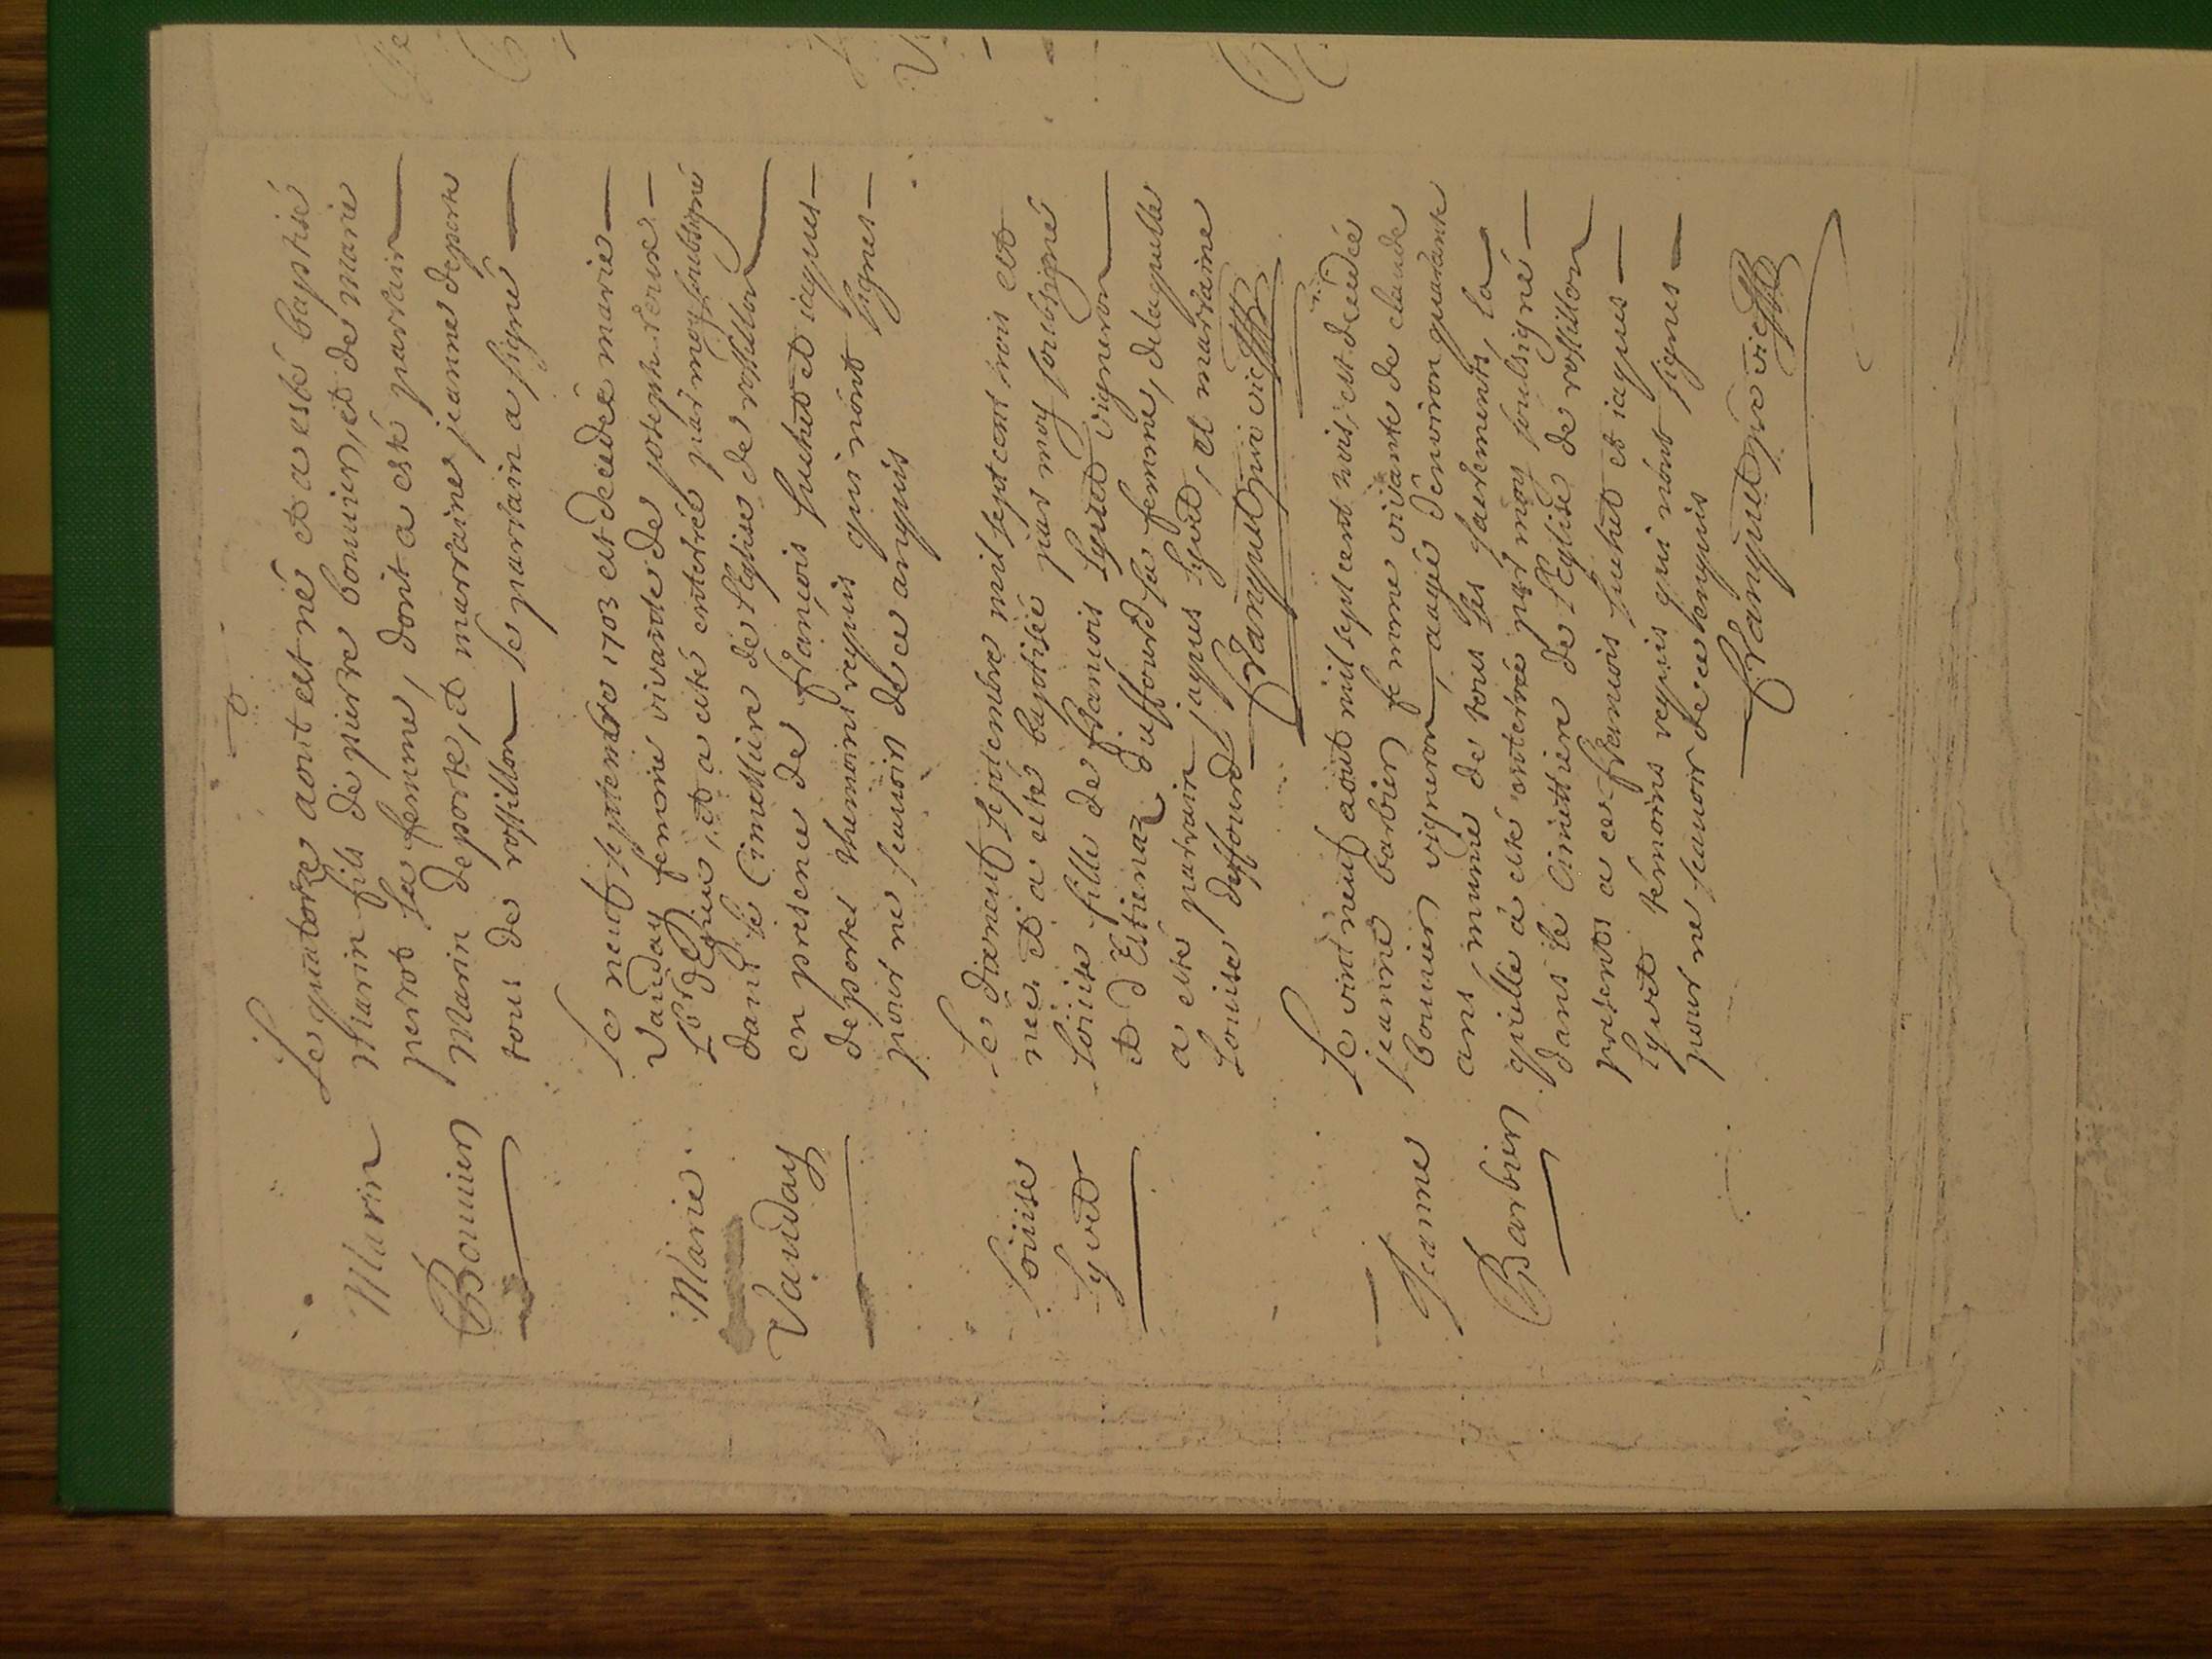 Marin
Bouvier
Le quatorze aout est né et a esté baptisé
Marin fils de pierre bouvier, et de marie
perrot sa femme, dont a esté parrain
Marin deporte, et marraine jeanne deporte
tous de rossillon le parrain a signé
Marie
Vauday
Le neuf septembre 1703 est decedée marie
Vauday femme vivante de joseph
et a esté enterrée par moy soubsigné
dans le Cimettiere de l'eglise de rossillon
en presence de françois suchet et iaques
deportes themoins requis qui n'ont signes
pour ne scavoir de ce enquis
Loüise
Lyvet
Le dixneuf septembre mil sept cent trois est
née et a esté baptisée par moy soubsigné
loüise fille de françois Lyvet vigneron
et d'Estienaz duffourd sa femme, delaquelle
a esté parrain jaques lyvet, et marraine
Louise duffourd
franquet vic
Jeanne
Barbier
Le vint neuf aout mil sept cent trois est decedée
jeanne barbier femme vivante de claude
bouvier vigneron, aagée d'environ quarante
ans munie de tous les sacrements, la
quelle a esté enterrée par moy soubsigné
dans le Cimettiere de l'Eglise de rossillon
presents a ce françois suchet et iaques
Lyvet témoins requis qui n'ont signes
pour ne scavoir de ce enquis
franquet vic